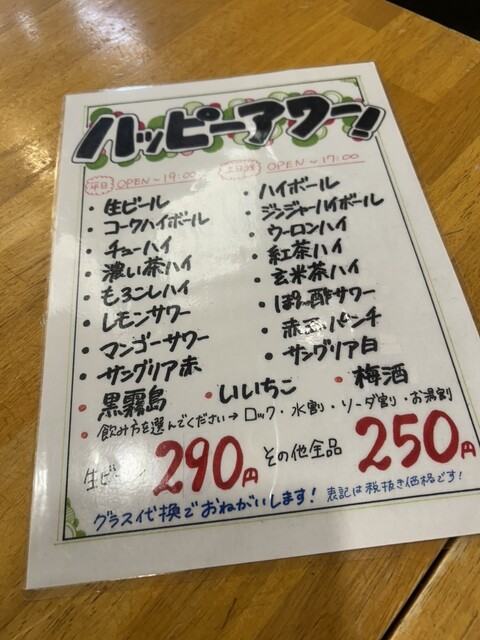 ハッピーアワー!
平日 OPEN～19:00 土日祝 OPEN～17:00
・生ビール ・ハイボール
・コークハイボール ・ジンジャーハイボール
・チューハイ ・ウーロンハイ
・濃い茶ハイ ・紅茶ハイ
・もろこしハイ ・玄米茶ハイ
・レモンサワー ・ぽん酢サワー
・マンゴーサワー ・赤玉パンチ
・サングリア赤 ・サングリア白
・黒霧島 ・いいちこ ・梅酒
・飲み方を選んでください→ロック・水割・ソーダ割・お湯割
生ビール 290円 その他全品 250円
グラス代換でおねがいします! 表記は税抜き価格です!